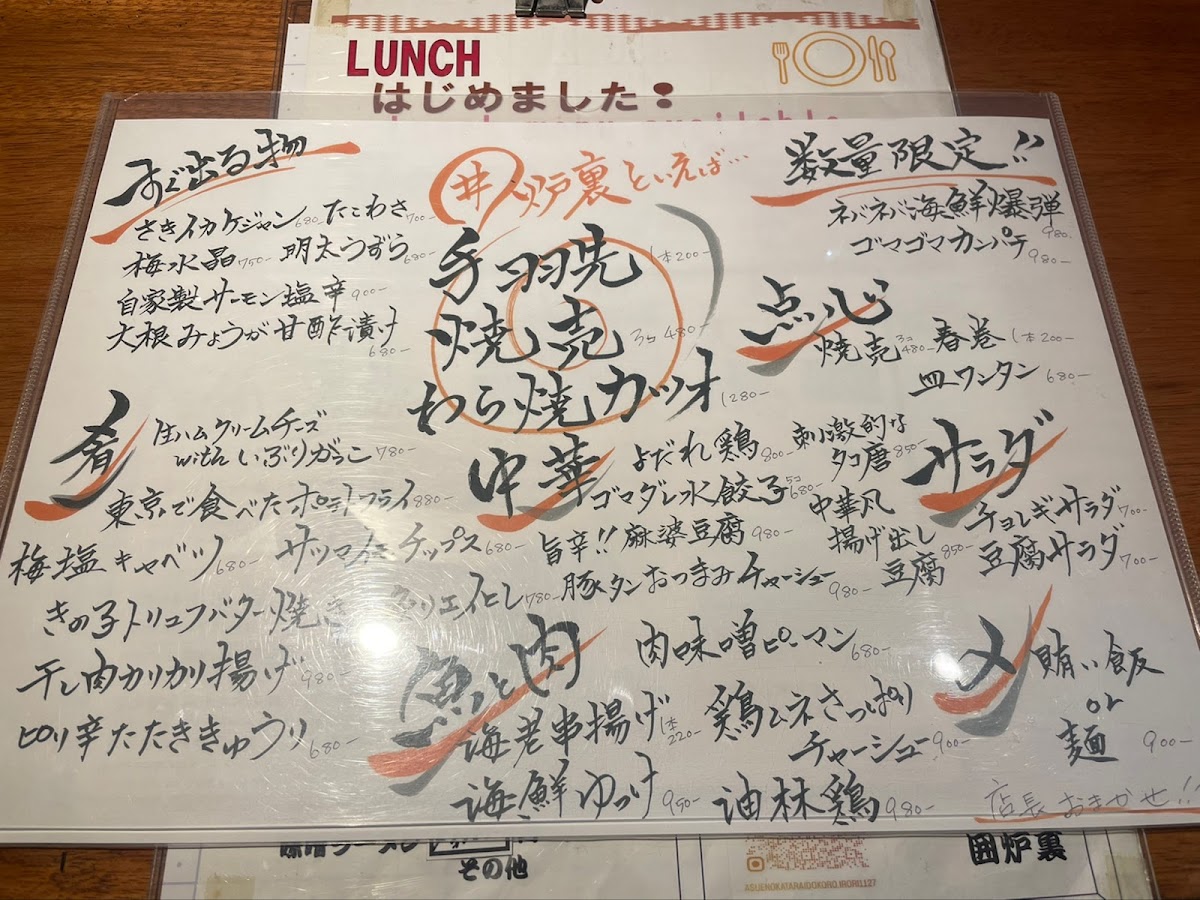 LUNCH
はじめました！
すぐ出る物
さきイカケジャン 680- たこわさ 700-
梅水晶 750- 明太うずら 680-
自家製サーモン塩辛 900-
大根みょうが甘酢漬け
680-
井炉裏といえば…
手羽先 1本200-
焼売 3コ480-
わら焼カツオ 1280-
数量限定!!
ネバネバ海鮮爆弾
980-
ゴマゴマカンパチ 980-
点心
焼売 3コ480- 春巻 1本200-
皿ワンタン 680-
肴
生ハムクリームチーズ
withいぶりがっこ 780-
東京で食べたポテトフライ 880-
梅塩キャベツ 680- サツマイモチップス 680-
きの子トリュフバター焼き エイヒレ 780-
干し肉カリカリ揚げ 980-
ピリ辛たたききゅうり 680-
中華
よだれ鶏 800- 刺激的な
タコ唐 850-
ゴマダレ水餃子 5コ680-
旨辛!!麻婆豆腐 980-
中華風
揚げ出し
豆腐 850-
豚タンおつまみチャーシュー
980-
サラダ
チョレギサラダ 700-
豆腐サラダ 700-
魚と肉
肉味噌ピーマン 680-
海老串揚げ 1本220-
鶏ムネさっぱり
チャーシュー 900-
海鮮ゆっけ 950- 油林鶏 980-
〆
賄い飯
or
麺 900-
店長おまかせ!!
味噌ラーメン
その他
ASUENOKATARAIDOKORO.IRORI1127
囲炉裏